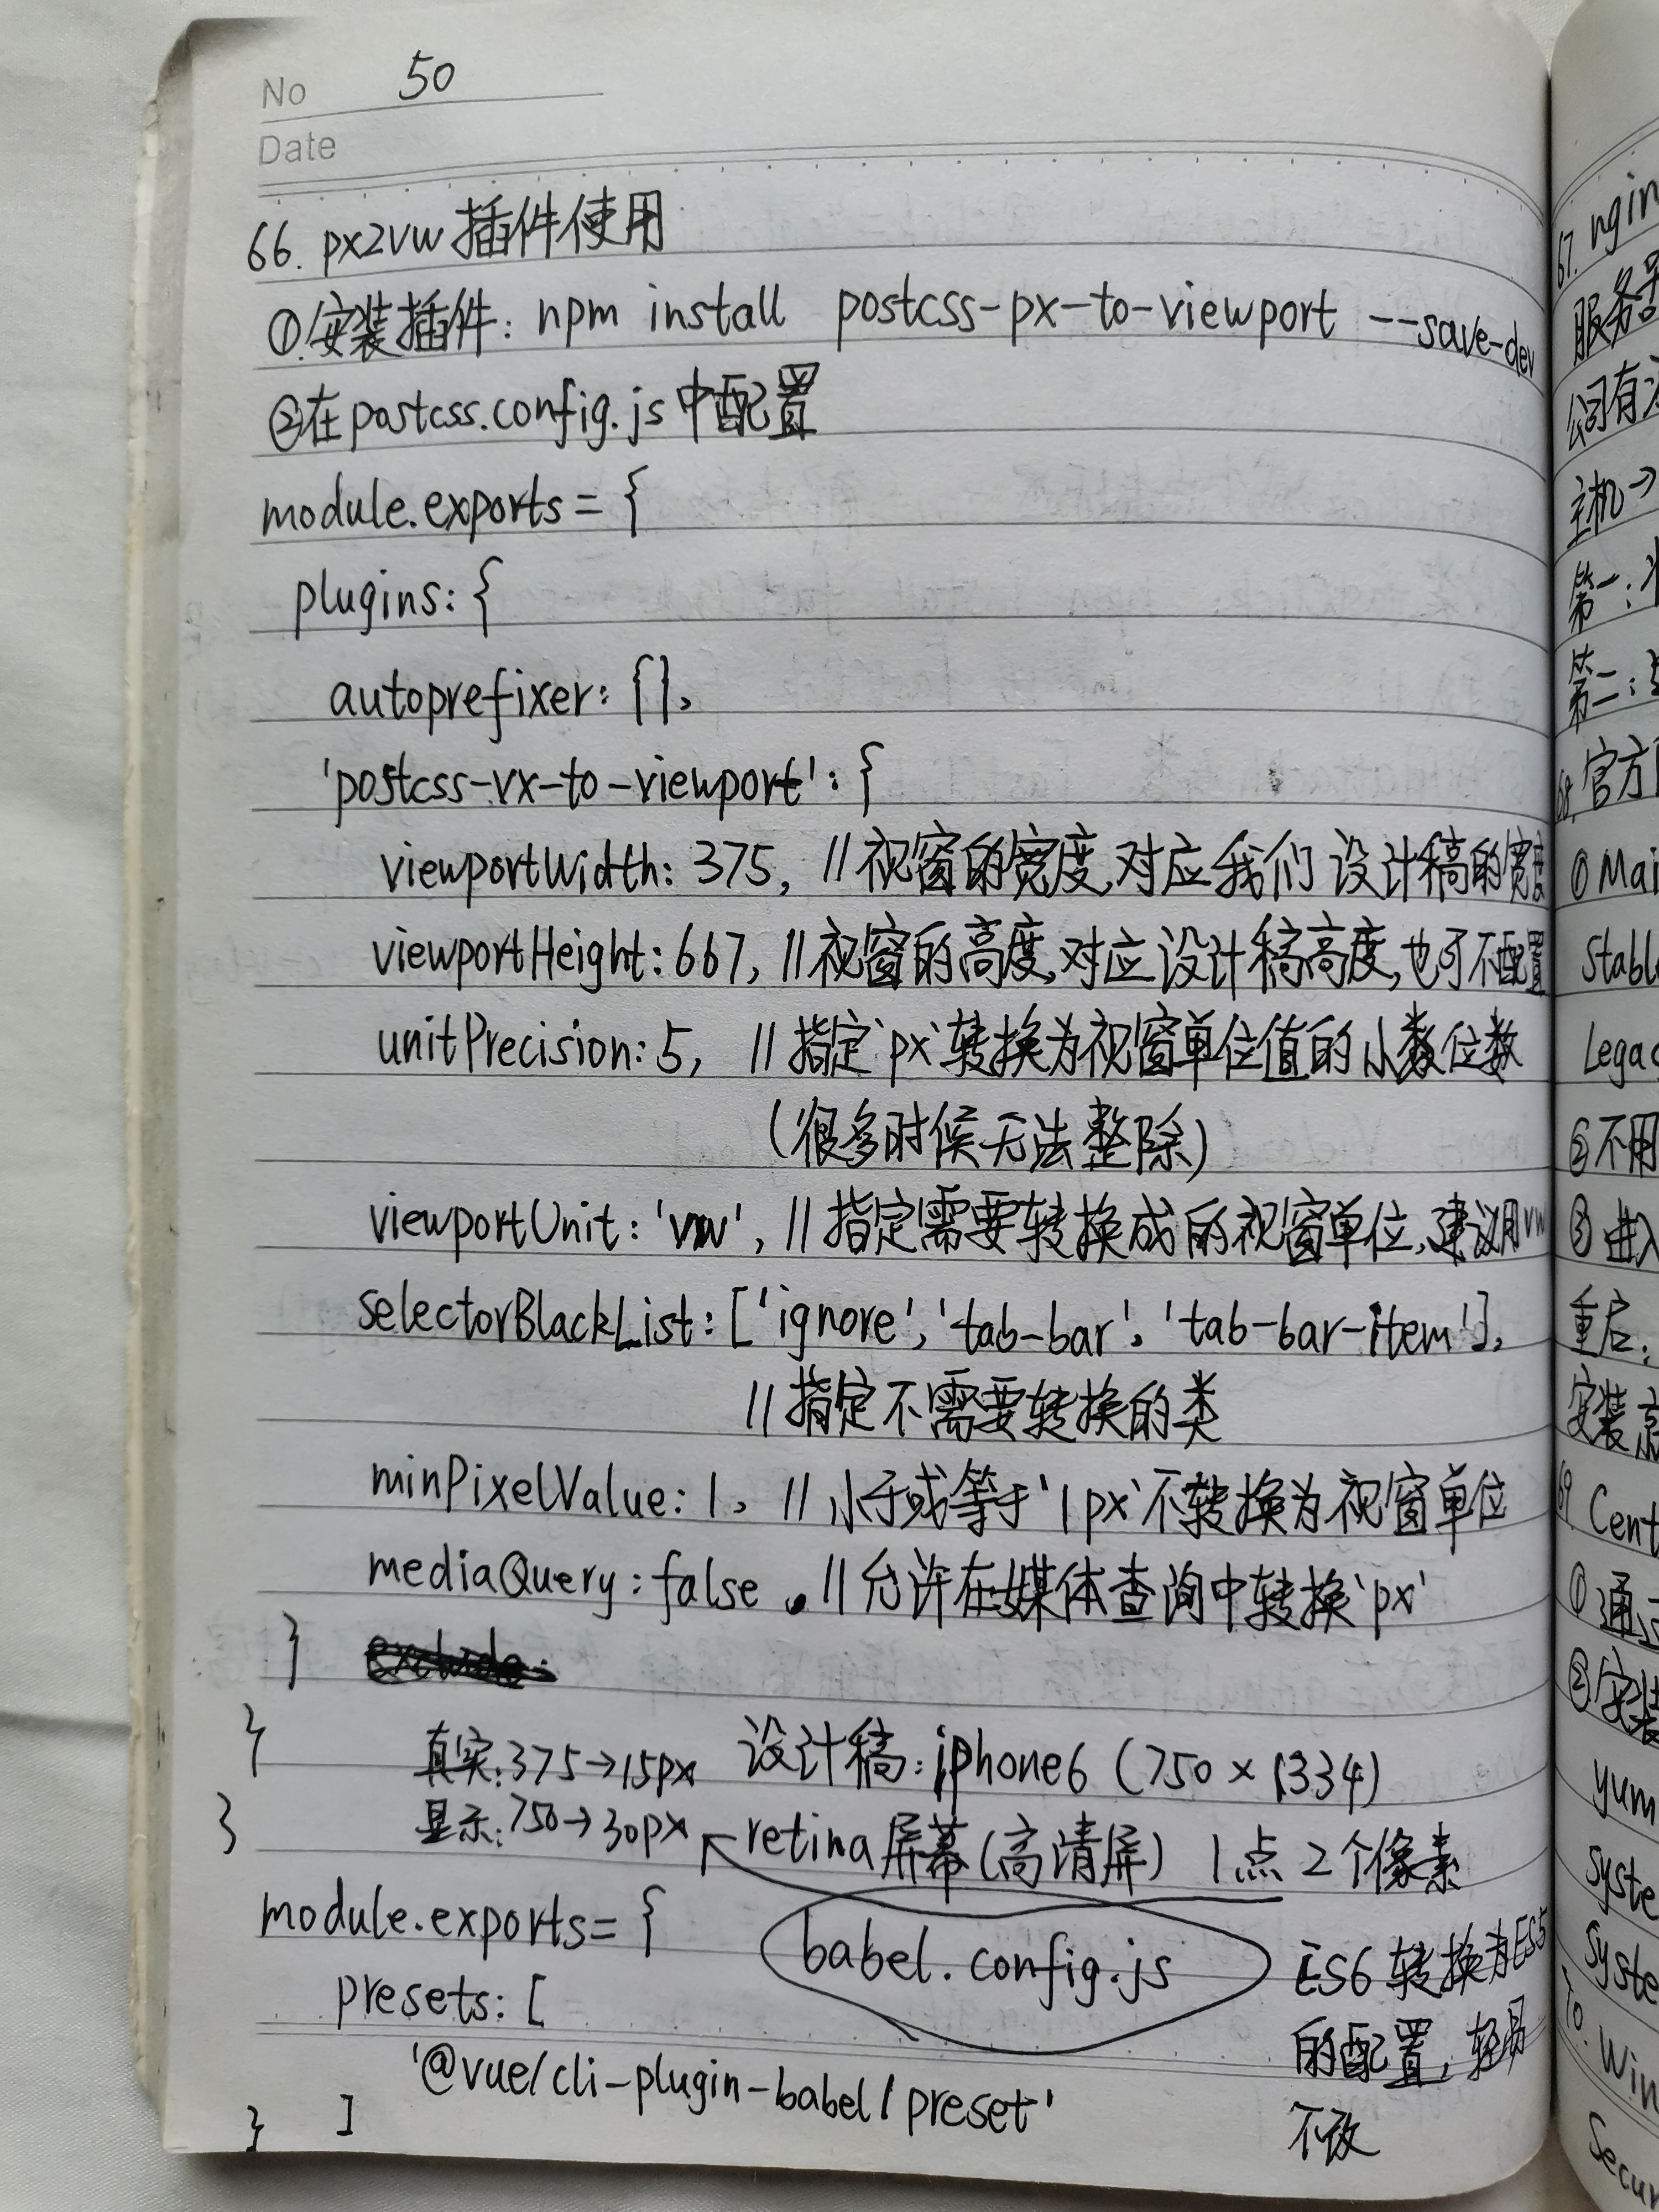 No 50
Date
66. px2vw插件使用
①安装插件: npm install postcss-px-to-viewport --save-dev
②在postcss.config.js中配置
module.exports = {
plugins: {
autoprefixer: {},
'postcss-vx-to-viewport': {
viewportWidth: 375, //视窗的宽度,对应我们设计稿的宽度
viewportHeight: 667, //视窗的高度,对应设计稿高度,也可不配置
unitPrecision: 5, //指定`px`转换为视窗单位值的小数位数
(很多时候无法整除)
viewportUnit: 'vw', //指定需要转换成的视窗单位,建议用vw
selectorBlackList: ['ignore', 'tab-bar', 'tab-bar-item'],
//指定不需要转换的类
minPixelValue: 1, //小于或等于`1px`不转换为视窗单位
mediaQuery: false, //允许在媒体查询中转换`px`
}
}
真实: 375→15px 设计稿: iphone6 (750×1334)
}
显示: 750→30px retina屏幕(高清屏) 1点2个像素
module.exports = {
babel.config.js
ES6转换为ES5
presets: [
的配置, 轻易
'@vue/cli-plugin-babel/preset'
不改
]
}
67. ngin
服务器
公司有
主机→
第一:
第二:
68. 官方
① Mai
Stabl
Legac
②不用
③进入
重启:
安装
69. Cent
①通过
②安装
yum
syste
syste
70. Win
Secur